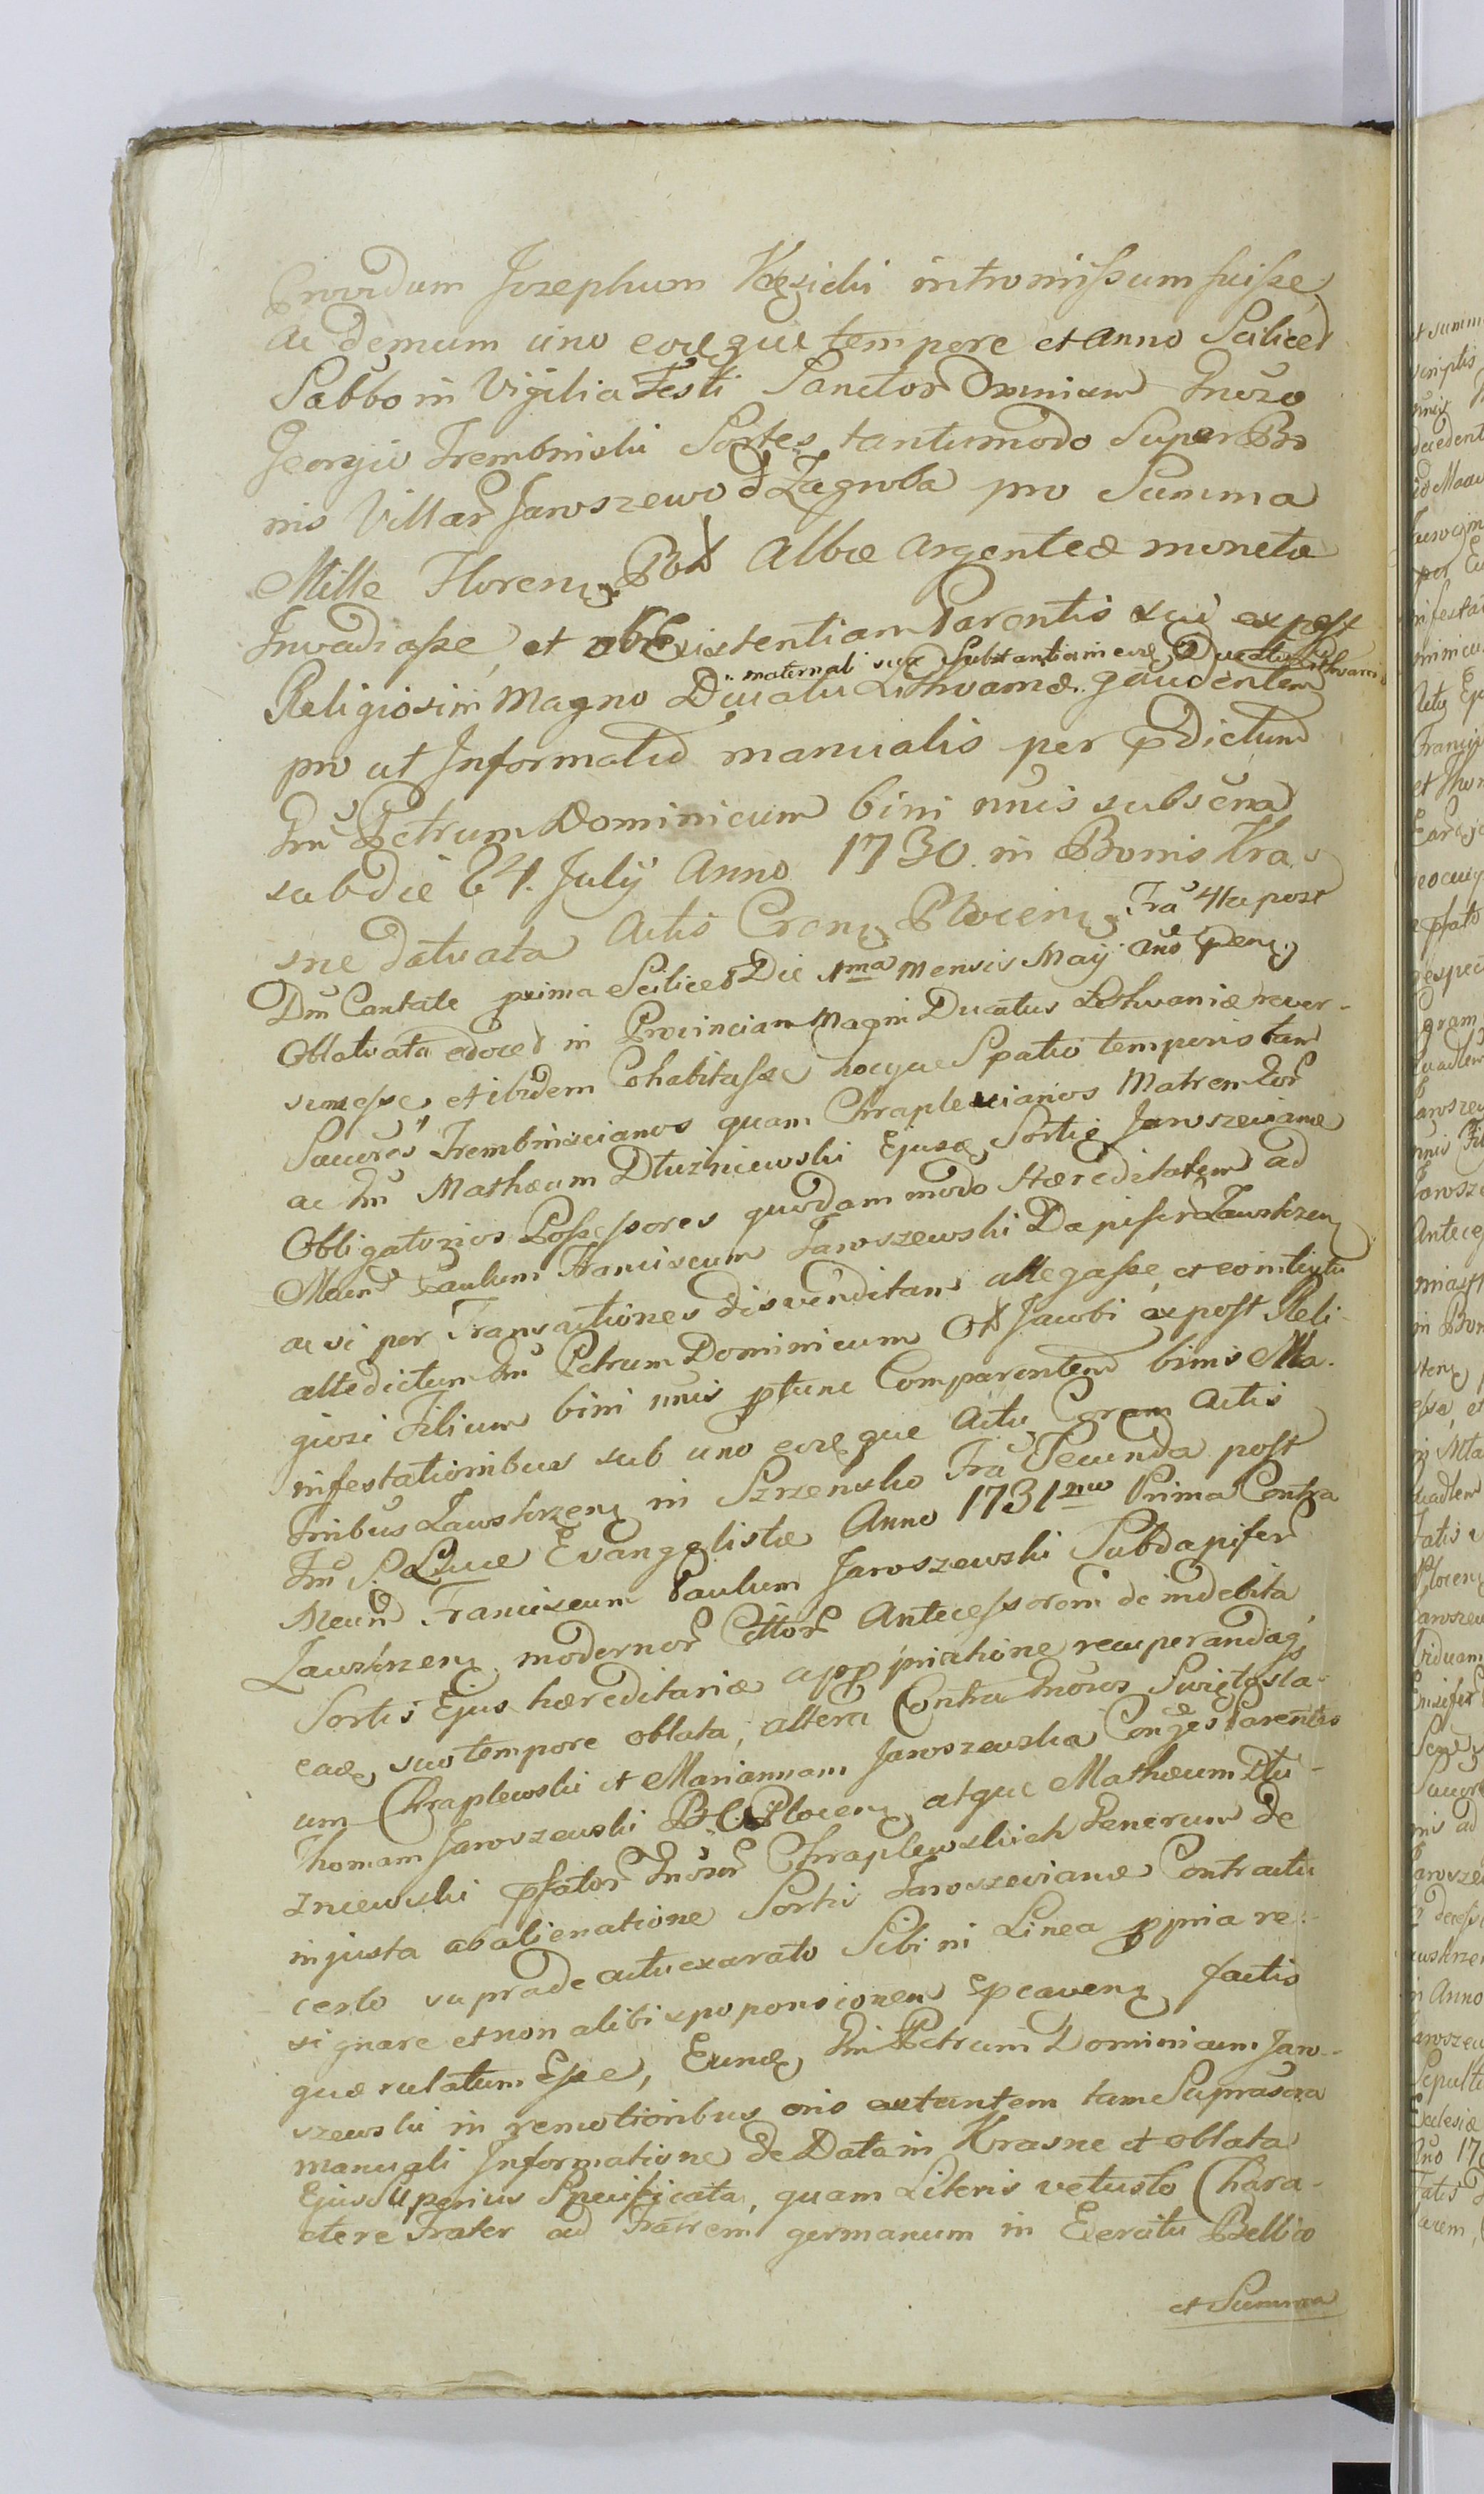 Providum Jozephum Kęsicki intromissum fuisse,
ac demum uno eodęque tempore et anno Scilicet
Sabbo in Vigilia Festi Sanctor Omnium Gnoso
Georgio Trembinski Sortes tantumodo Super Bo
nis Villar Jaroszewo et Zagroba pro Summa
Mille Floren Pol albæ argenteæ monetæ
Invadiasse, et ob Existentiam Parentis sui ex post
maternali suæ Substantiam eod Ducatu Lithvaniæ
Religiosi in Magno Ducatu Lithvaniæ gaudentem
pro ut Informatio manualis per pdictum
Gnu Petrum Dominicum bini nnis subscria
sub die 24. July Anno 1730 in Bonis Kra
sne datuata Actis Cren Plocen Fra 4ta post
Dm Cantate prima Scilicet Die 1ma Mensis May ano pden
Oblatuata edocet in Provinciam Magni Ducatus Lithvaniæ rever-
sum esse, et ibidem Cohabitasse hocque Spatio temporis tam
Succres Trembinscianos quam Chraplewianos Matrem tor
ac Gnu Mathæum Dłuzniewski Ejusd Sortis Jaroszewianæ
Obligatorios Possessores quodam modo Hæreditatem ad
Mcum Paulum Franciscum Jaroszewski Dapifer Zawskrzen
ac si per Transactiones disvenditam allegasse, et eo intuitu
altedictum Gnu Petrum Dominicum Ol Jacobi ex post Reli-
giosi Filium bini nnis ptunc Comparentem binis Ma-
nifestationibus sub uno eodęque Actu Coram Actis
Tnibus Zawskrzen in Szrensko Fra Secunda post
Fm S. Lucæ Evangelistæ Anno 1731mo Prima Contra
Mcum Franciscum Paulum Jaroszewski Subdapifer
Zawskrzen modernor Cittor Antecessorem de indebita
Sortis Ejus hæreditariæ appriatione recuperandaq
eadę suo tempore oblata, altera Contra Gnosos Swiętosla-
um Chraplewski et Mariannam Jaroszewska Conges Parentes
Thomam Jaroszewski B. C. Plocen, atque Mathæum Dłu-
zniewski pfator Gnosor Chraplewskich Generum de
injusta abalienatione Sortis Jaroszewianæ Contractu
certo suprade actu exarato Sibi ni Linea ppria re-
signare et non alibi spoponsionem Epcaven factis
quærulatum Esse, Eundę Gm Petrum Dominicum Jaro-
szewski in remotioribus oris extantem tam Suprascra
manuali Informatione de Data in Krasne et oblata
Ejus Superius Specificata, quam Literis vetusto Chara-
ctere Frater ad Fratrem germanum in Exercitu Bellico
et Summa